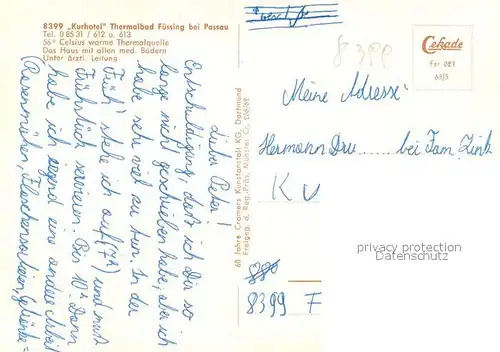 8399 „Kurhotel" Thermalbad Füssing bei Passau
Tel. 0 85 31 / 612 u. 613
56° Celsius warme Thermalquelle
Das Haus mit allen med. Bädern
Unter ärztl. Leitung
Lieber Peter!
Entschuldigung, daß ich Dir so
lange nicht geschrieben habe, aber ich
habe sehr viel zu tun. In der
Früh' stehe ich auf (7h) und muß
Frühstück servieren. Bis 10h. Dann
habe ich irgend eine andere Arbeit
(Rasenmähen, Flaschensortieren, Getränke=
60 Jahre Cramers Kunstanstalt KG, Dortmund
Freigeg. d. Reg.-Präs. Münster
8399
Cekade
Fsr 021
63/5
Meine Adresse:
Hermann Dru...... bei Fam. Zink
K V
privacy protection
Datenschutz
8399 F